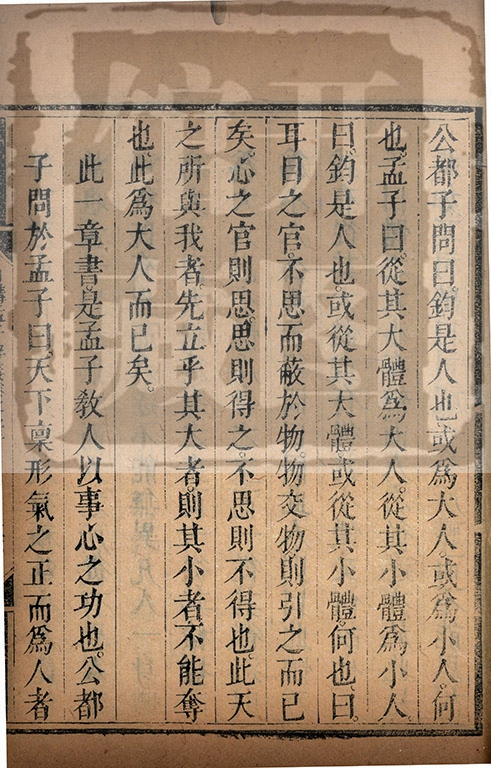 公都子問曰。鈞是人也。或為大人。或為小人。何
也。孟子曰。從其大體為大人。從其小體為小人。
曰。鈞是人也。或從其大體。或從其小體。何也。曰。
耳目之官。不思而蔽於物。物交物。則引之而已
矣。心之官則思。思則得之。不思則不得也。此天
之所與我者。先立乎其大者。則其小者不能奪
也。此為大人而已矣。
此一章書。是孟子教人以事心之功也。公都
子問於孟子曰。天下稟形氣之正而為人者